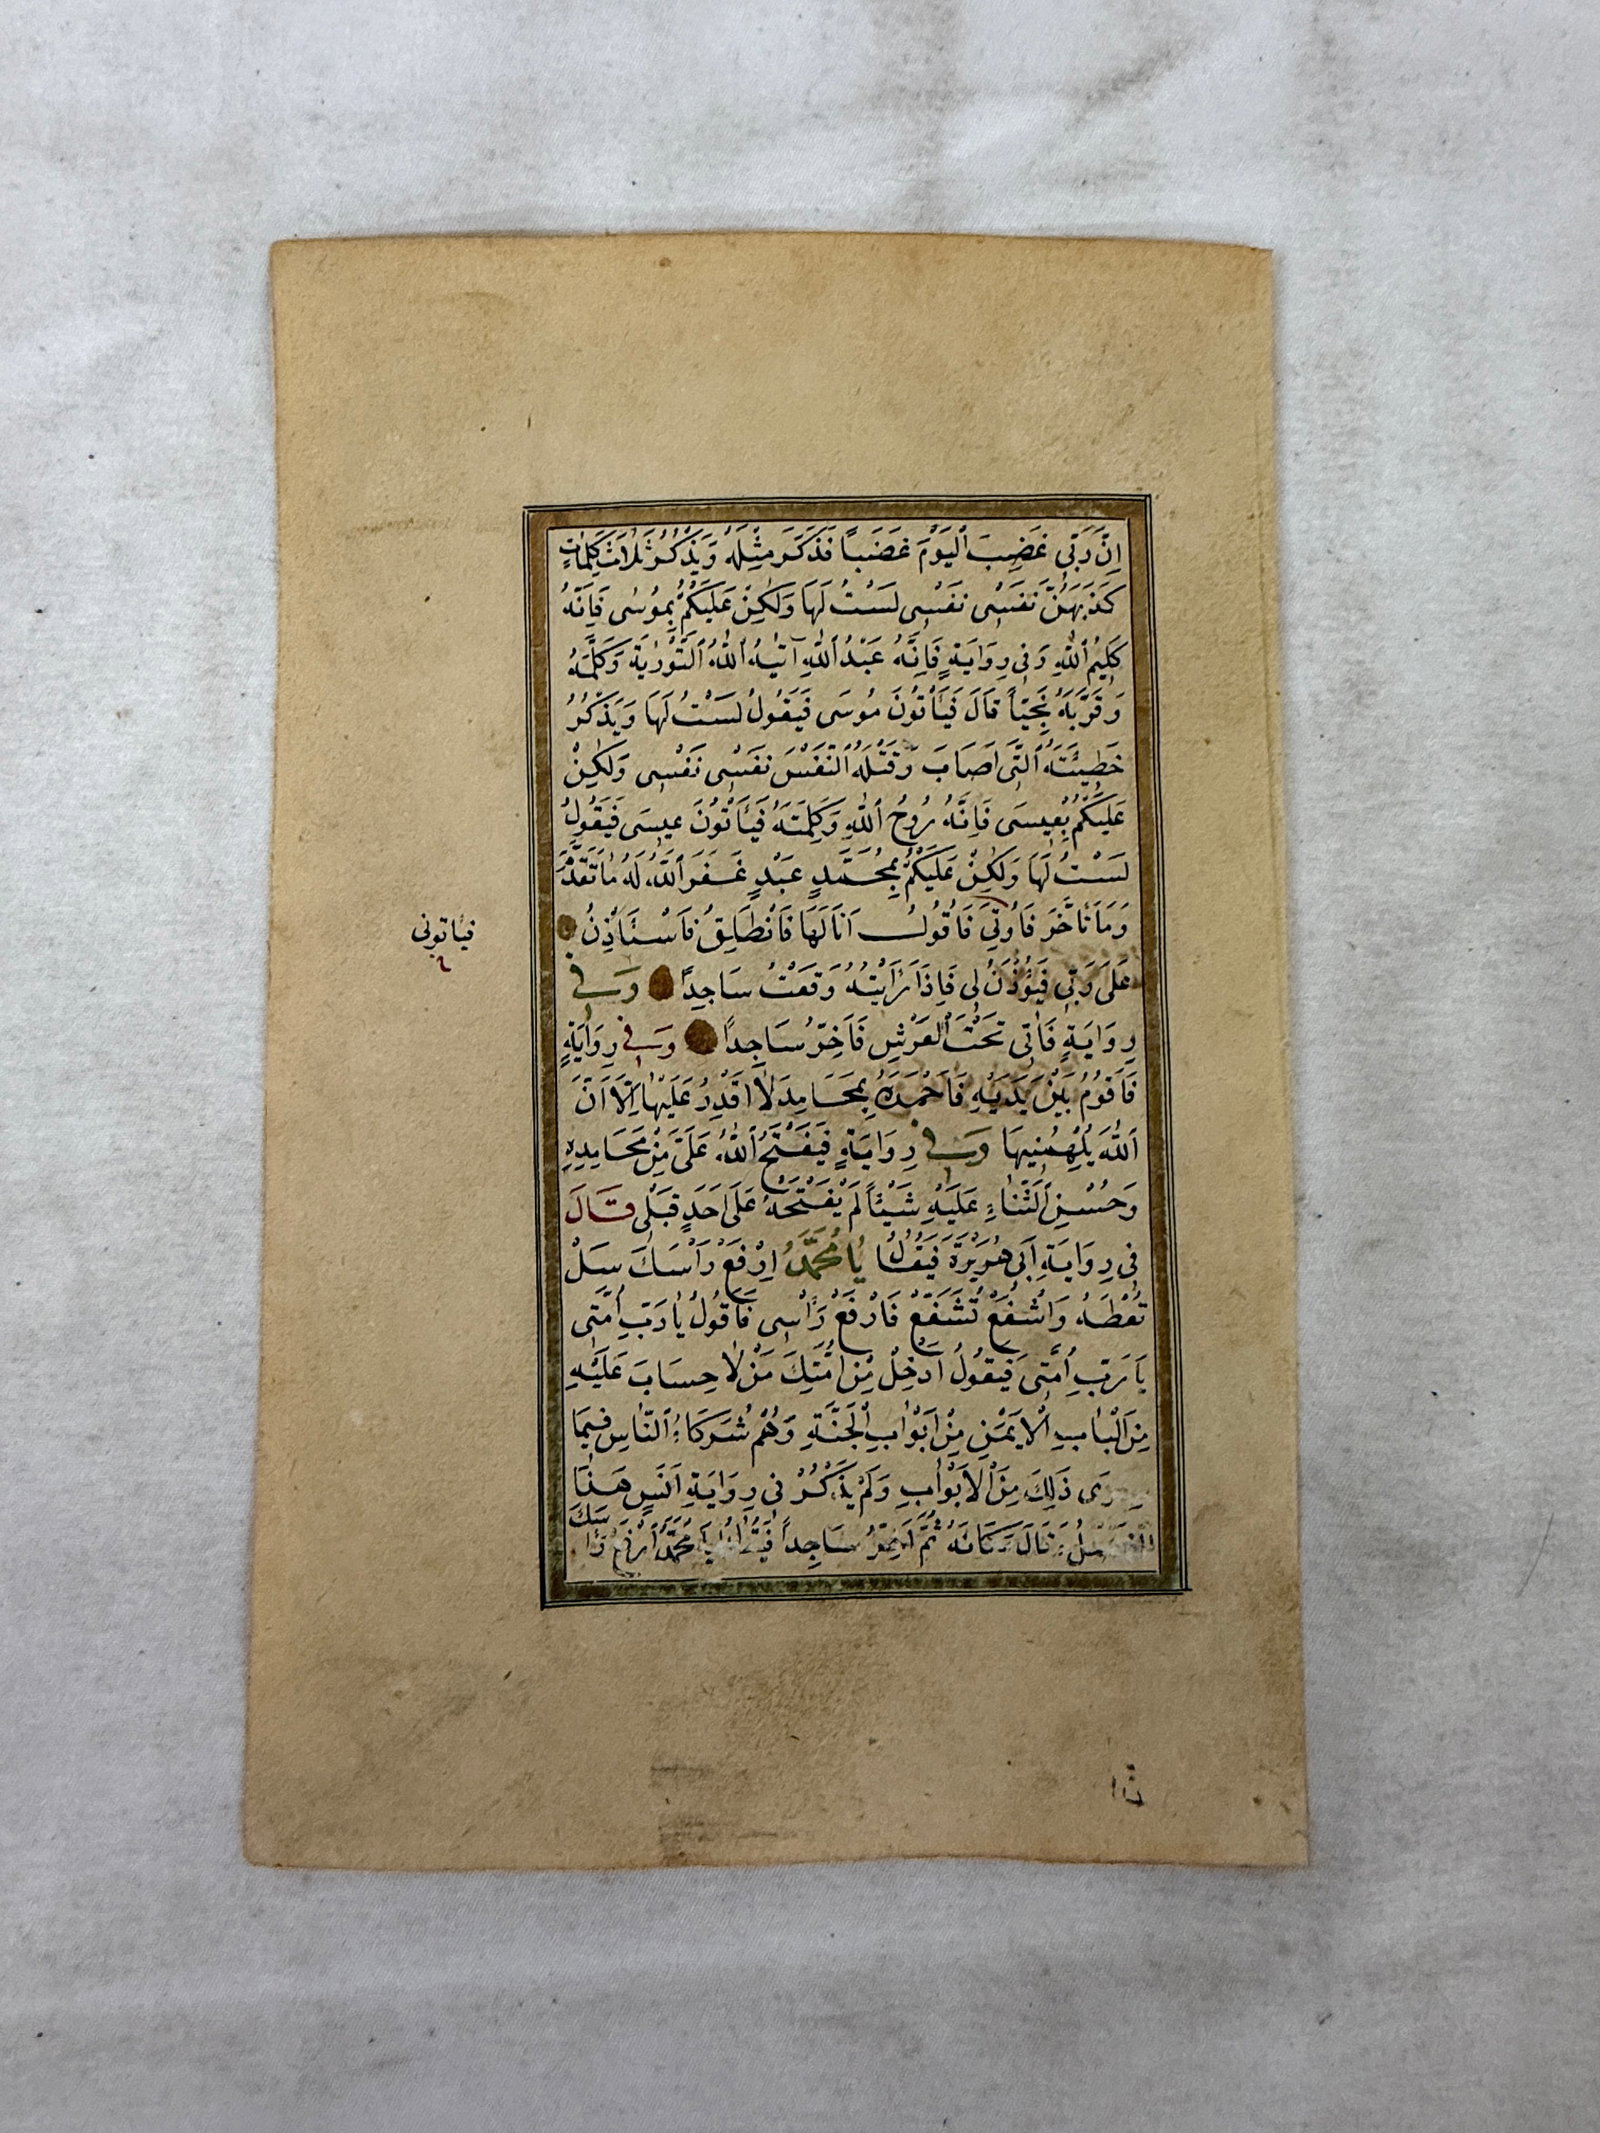 اِنَّ رَبِّي غَضِبَ الْيَوْمَ غَضَبًا فَذَكَرَ مِثْلَهُ وَيَذْكُرُ ثَلَاثَ كَلِمَاتٍ
كَذَبَهُنَّ نَفْسِي نَفْسِي لَسْتُ لَهَا وَلٰكِنْ عَلَيْكُمْ بِمُوسٰى فَاِنَّهُ
كَلِيمُ اللهِ وَفِي رِوَايَةٍ فَاِنَّهُ عَبْدُ اللهِ آتٰيهُ اللهُ التَّوْرٰيةَ وَكَلَّمَهُ
وَقَرَّبَهُ نَجِيّاً قَالَ فَيَأْتُونَ مُوسَى فَيَقُولُ لَسْتُ لَهَا وَيَذْكُرُ
خَطِيئَتَهُ الَّتِي اَصَابَ وَقَتْلَهُ النَّفْسَ نَفْسِي نَفْسِي وَلٰكِنْ
عَلَيْكُمْ بِعِيسَى فَاِنَّهُ رُوحُ اللهِ وَكَلِمَتُهُ فَيَأْتُونَ عِيسَى فَيَقُولُ
لَسْتُ لَهَا وَلٰكِنْ عَلَيْكُمْ بِمُحَمَّدٍ عَبْدٍ غَفَرَ اللهُ لَهُ مَا تَقَدَّمَ
وَمَا تَأَخَّرَ فَاُوتَى فَاَقُولُ اَنَا لَهَا فَاَنْطَلِقُ فَاَسْتَأْذِنُ
عَلَى رَبِّي فَيُؤْذَنُ لِي فَاِذَا رَاَيْتُهُ وَقَعْتُ سَاجِدًا وَفِي
رِوَايَةٍ فَاٰتِي تَحْتَ الْعَرْشِ فَاَخِرُّ سَاجِدًا وَفِي رِوَايَةٍ
فَاَقُومُ بَيْنَ يَدَيْهِ فَاَحْمَدُهُ بِمَحَامِدَ لَا اَقْدِرُ عَلَيْهَا اِلَّا اَنْ
اللهَ يُلْهِمُنِيهَا وَفِي رِوَايَةٍ فَيَفْتَحُ اللهُ عَلَيَّ مِنْ مَحَامِدِهِ
وَحُسْنِ الثَّنَاءِ عَلَيْهِ شَيْئًا لَمْ يَفْتَحْهُ عَلَى اَحَدٍ قَبْلِي قَالَ
فِي رِوَايَةِ اَبِي هُرَيْرَةَ فَيُقَالُ يَا مُحَمَّدُ اِرْفَعْ رَأْسَكَ سَلْ
تُعْطَهُ وَاشْفَعْ تُشَفَّعْ فَاَرْفَعُ رَأْسِي فَاَقُولُ يَا رَبِّ اُمَّتِي
يَا رَبِّ اُمَّتِي فَيَقُولُ اَدْخِلْ مِنْ اُمَّتِكَ مَنْ لَا حِسَابَ عَلَيْهِ
مِنَ الْبَابِ الْاَيْمَنِ مِنْ اَبْوَابِ الْجَنَّةِ وَهُمْ شُرَكَاءُ النَّاسِ فِيمَا
سِوَى ذَلِكَ مِنَ الْاَبْوَابِ وَلَمْ يَذْكُرْ فِي رِوَايَةِ اَنَسٍ هَذَا
الْفَصْلَ وَقَالَ مَكَانَهُ ثُمَّ اَخِرُّ سَاجِداً فَيُقَالُ يَا مُحَمَّدُ ارْفَعْ رَأْسَكَ
فيأتوني